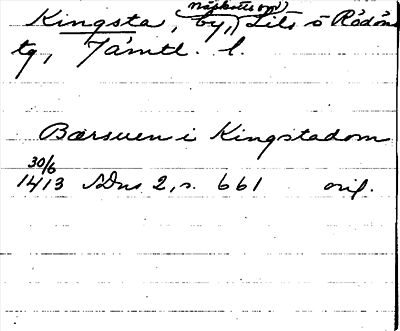 Kingsta, by, (Näskotts sn) Lits o Rödöns
tg, Jämtl. l.
Bærsuen i Kingstadom
30/6
1413 SDns 2, s. 661 orig.